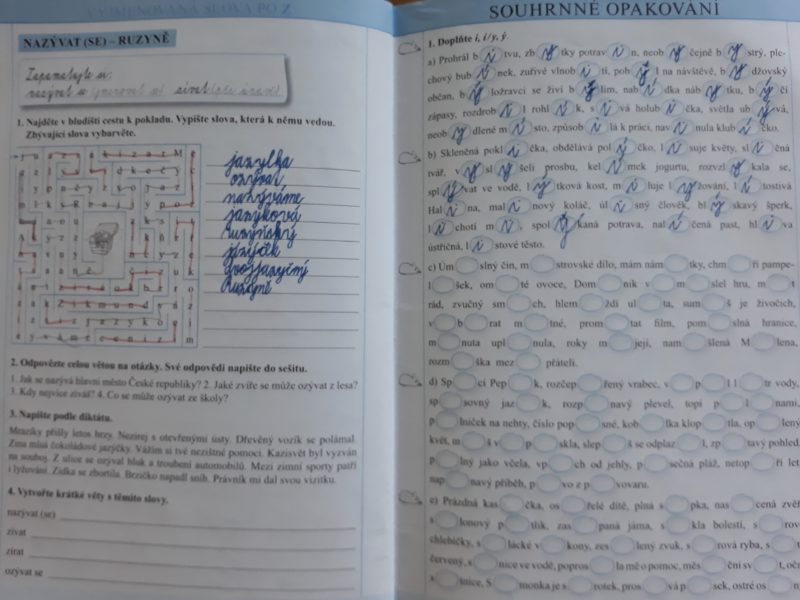 NAZÝVAT (SE) – RUZYNĚ
Zapamatujte si:
nazývat se (jmenovat se)
1. Najděte v bludišti cestu k pokladu. Vypište slova, která k němu vedou.
Zbývající slova vybarvěte.
jazylka
ozývat
nazýváme
jazyková
ruzyňský
jazýček
dvojjazyčný
Ruzyně
2. Odpovězte celou větou na otázky. Své odpovědi napište do sešitu.
1. Jak se nazývá hlavní město České republiky? 2. Jaké zvíře se může ozývat z lesa?
3. Kdy nejvíce zíváš? 4. Co se může ozývat ze školy?
3. Napište podle diktátu.
Mrazíky přišly letos brzy. Nezírej s otevřenými ústy. Dřevěný vozík se polámal.
Zina míná čokoládové jazýčky. Vážím si tvé nezištné pomoci. Kazisvět byl vyzván
na souboj. Z ulice se ozýval hluk a troubení automobilů. Mezi zimní sporty patří
i lyžování. Zídka se zbortila. Brzičko napadl sníh. Právník mi dal svou vizitku.
4. Vytvořte krátké věty s těmito slovy.
nazývat (se)
zívat
zírat
ozývat se
SOUHRNNÉ OPAKOVÁNÍ
1. Doplňte i, í/y, ý.
a) Prohrál bitvu, zbytky potravin, neobyčejně bystrý, ple-
chový bubínek, zuřivé vlnobití, pobýl na návštěvě, bydžovský
občan, býložravci se živí býlím, nabídka nábytku, býčí
zápasy, rozdrobil rohlík, sivá holubička, světla ubývá,
neobydlené místo, způsobilá k práci, navinula klubíčko.
b) Skleněná poklička, obdělává políčko, lisuje květy, sličná
tvář, vyslyšeli prosbu, kelímek jogurtu, rozvzlykala se,
splývat ve vodě, lýtková kost, miluje lyžování, lítostivá
Halina, malí nový koláč, úlisný člověk, blýskavý šperk,
lichotí mi, spolykaná potrava, nalíčená past, hlíva
ústřičná, listové těsto.
c) Úm slný čin, m strovské dílo, mám nám tky, chm ří pampe-
l šek, om té ovoce, Dom n k v m slel hru, m t
rád, zvučný sm ch, hlem ždí ul ta, sum š je živočich,
v b rat m tné, prom tat film, pom slná hranice,
m nuta upl nula, roky m její, nam šlená M lena,
rozm ška mez přáteli.
d) Sp cí Pep k, rozčep řený vrabec, v p l l tr vody,
sp sovný jaz k, rozp navý plevel, topí p l nami,
p lníček na nehty, číslo pop sné, kob lka klop tla, op lený
květ, m š v p skla, slep š se odplaz l, zp tavý pohled,
p lný jako včela, vp ch od jehly, p sečná pláž, netop ří let,
nap navý příběh, p vo z p vovaru.
e) Prázdná kas čka, os řelé dítě, plná s pka, nas cená zvěř
s lonový p tlík, zas paná jáma, s kla bolestí, s rov
chlebíčky, s lácké v kony, zes lený zvuk, s rová ryba, s t
červený, s nice ve vodě, popros la mě o pomoc, měs ční sv t, oči
s tnice, S monka je s rotek, pros vá p sek, ostré os n